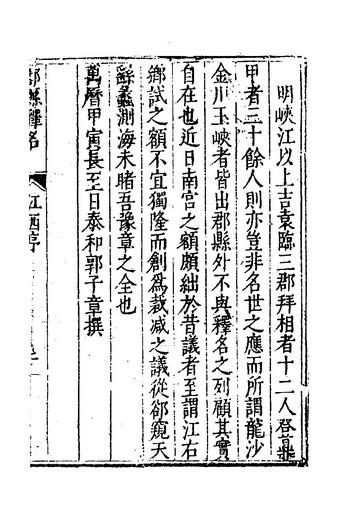 明峽江以上吉袁臨三郡拜相者十二人登首
甲者三十餘人則亦豈非名世之應而所謂龍沙
金川玉峽者皆出郡縣外不與釋名之列顧其實
自在也近日南宮之額頗絀於昔議者至謂江右
鄉試之額不宜獨隆而創為裁減之議從郤窺天
蠡測海未睹吾豫章之全也
萬曆甲寅長至日泰和郭子章撰
郡縣釋名
江西序